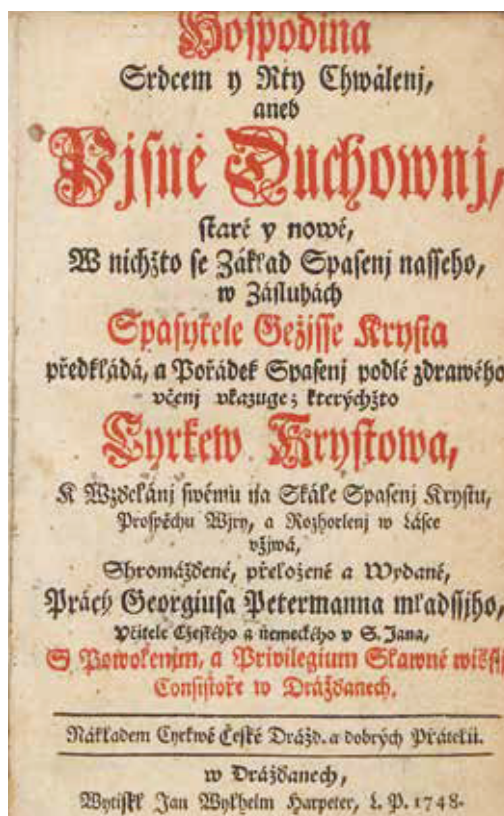 Hospodina
Srdcem y Rty Chwálenj,
aneb
Pjsně Duchownj,
staré y nowé,
W nichžto se Základ Spasenj nasseho,
w Zásluhách
Spasytele Gežjsse Krysta
předkládá, a Pořádek Spasenj podlé zdrawého
včenj vkazuge; kterýchžto
Cyrkew Krystowa,
K Wzdělánj swému na Skále Spasenj Krystu,
Prospěchu Wjry, a Rozhorlenj w Lásce
vžjwá,
Shromážděné, přeložené a Wydané,
Pracý Georgiusa Petermanna mladssjho,
Včitele Cžeského a německého v S. Jana,
S Powolenjm, a Privilegium Slawné wišší
Consistoře w Drážďanech.
Nákladem Cyrkwé České Drážd. a dobrých Přátelů.
w Drážďanech,
Wytiskl Jan Wylhelm Harpeter, L. P. 1748.